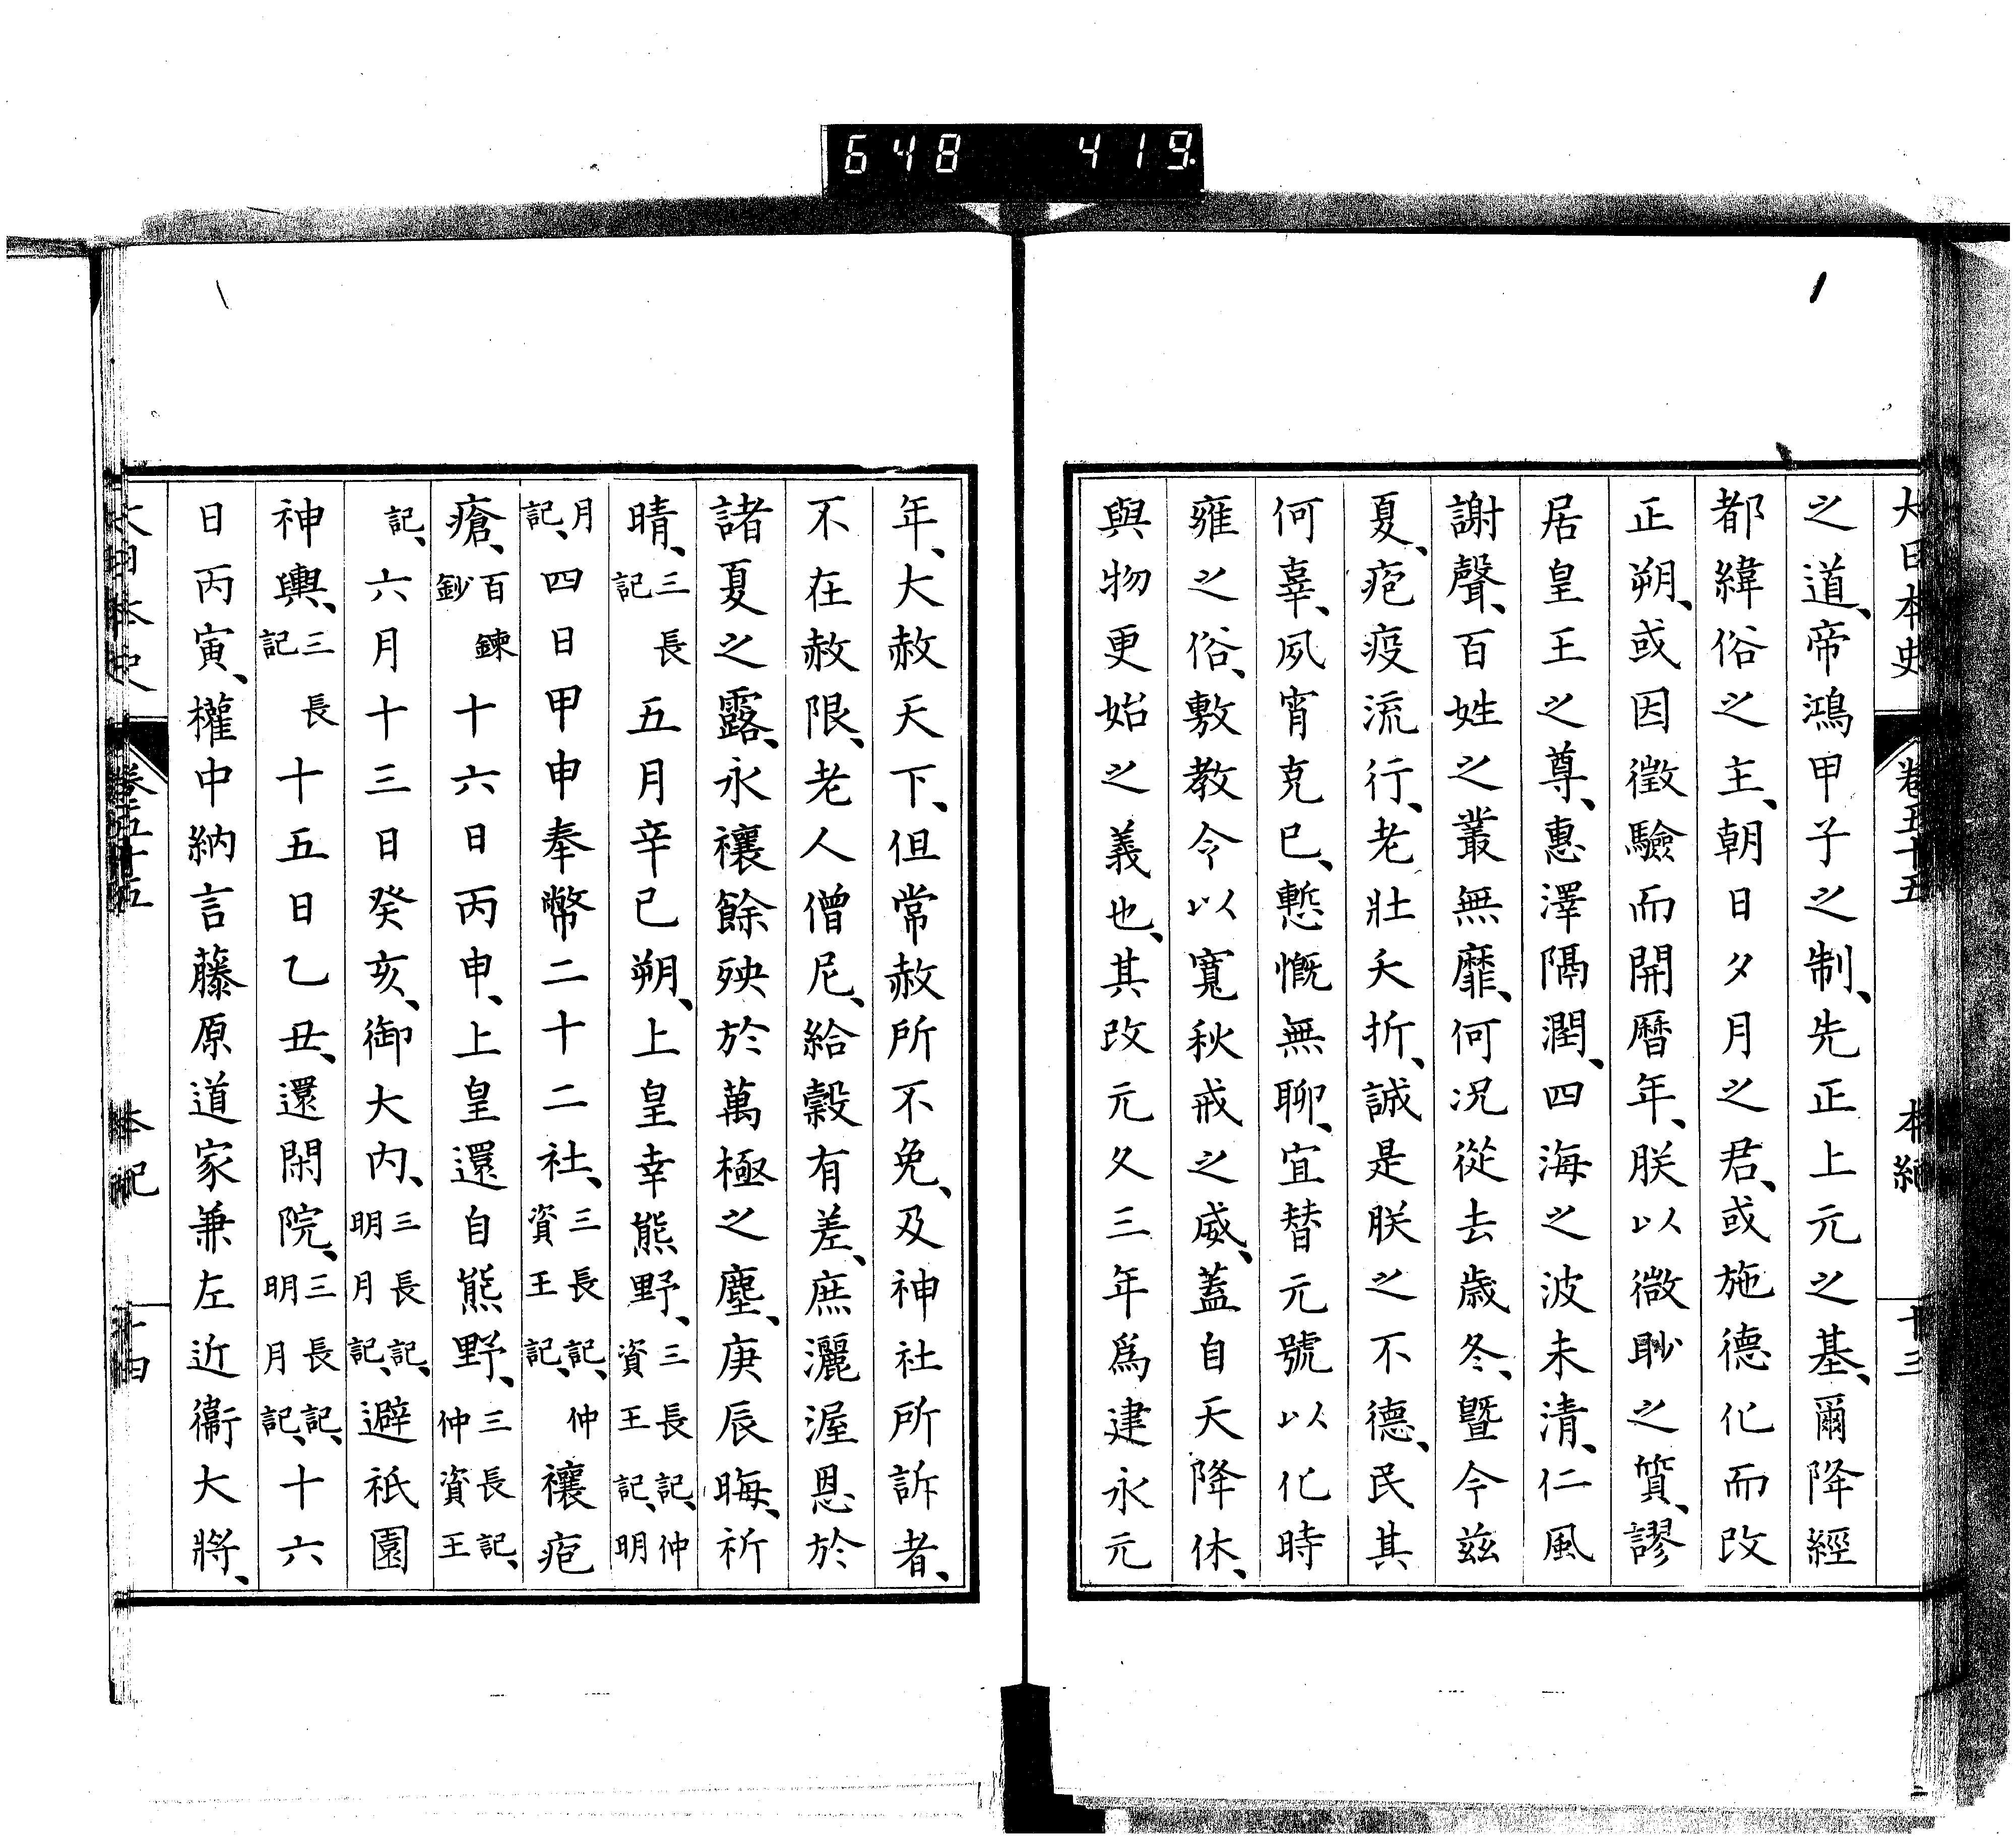 648 419
大日本史 卷五十五 本紀 十三
之道、帝鴻甲子之制、先正上元之基、爾降經
都緯俗之主、朝日夕月之君、或施德化而改
正朔、或因徵驗而開曆年、朕以微眇之質、謬
居皇王之尊、惠澤隔潤、四海之波未清、仁風
謝聲、百姓之叢無靡、何況從去歲冬、曁今茲
夏、疱疫流行、老壯夭折、誠是朕之不德、民其
何辜、夙宵克已、慙慨無聊、宜替元號以化時
雍之俗、敷教令以寬秋戒之威、蓋自天降休、
與物更始之義也、其改元久三年爲建永元
年、大赦天下、但常赦所不免、及神社所訴者、
不在赦限、老人僧尼、給穀有差、庶灑渥恩於
諸夏之露、永禳餘殃於萬極之塵、庚辰晦、祈
晴、三長記五月辛巳朔、上皇幸熊野、三長記、仲資王記、明
月記、四日甲申奉幣二十二社、三長記、仲資王記、禳疱
瘡、百鍊鈔十六日丙申、上皇還自熊野、三長記、仲資王
記、六月十三日癸亥、御大内、三長記、明月記、避祇園
神輿、三長記十五日乙丑、還閑院、三長記、明月記、十六
日丙寅、權中納言藤原道家兼左近衞大將、
大日本史 卷五十五 本紀 十四